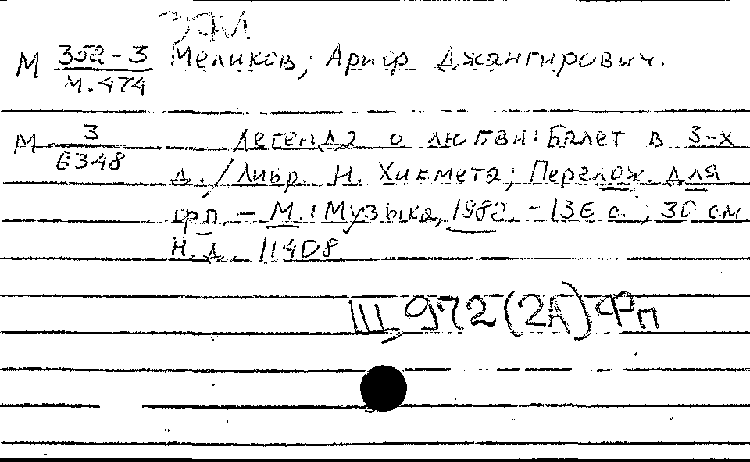 М 352-3 Меликов, Ариф Джангирович.
М.474
М 3 Легенда о любви: Балет в 3-х
Б348 д./Либр. Н. Хикмета; Перелож. для
фп. - М.: Музыка, 1982. - 136 с.; 30 см
Н.д. 11408
Щ 972(2А)Фп